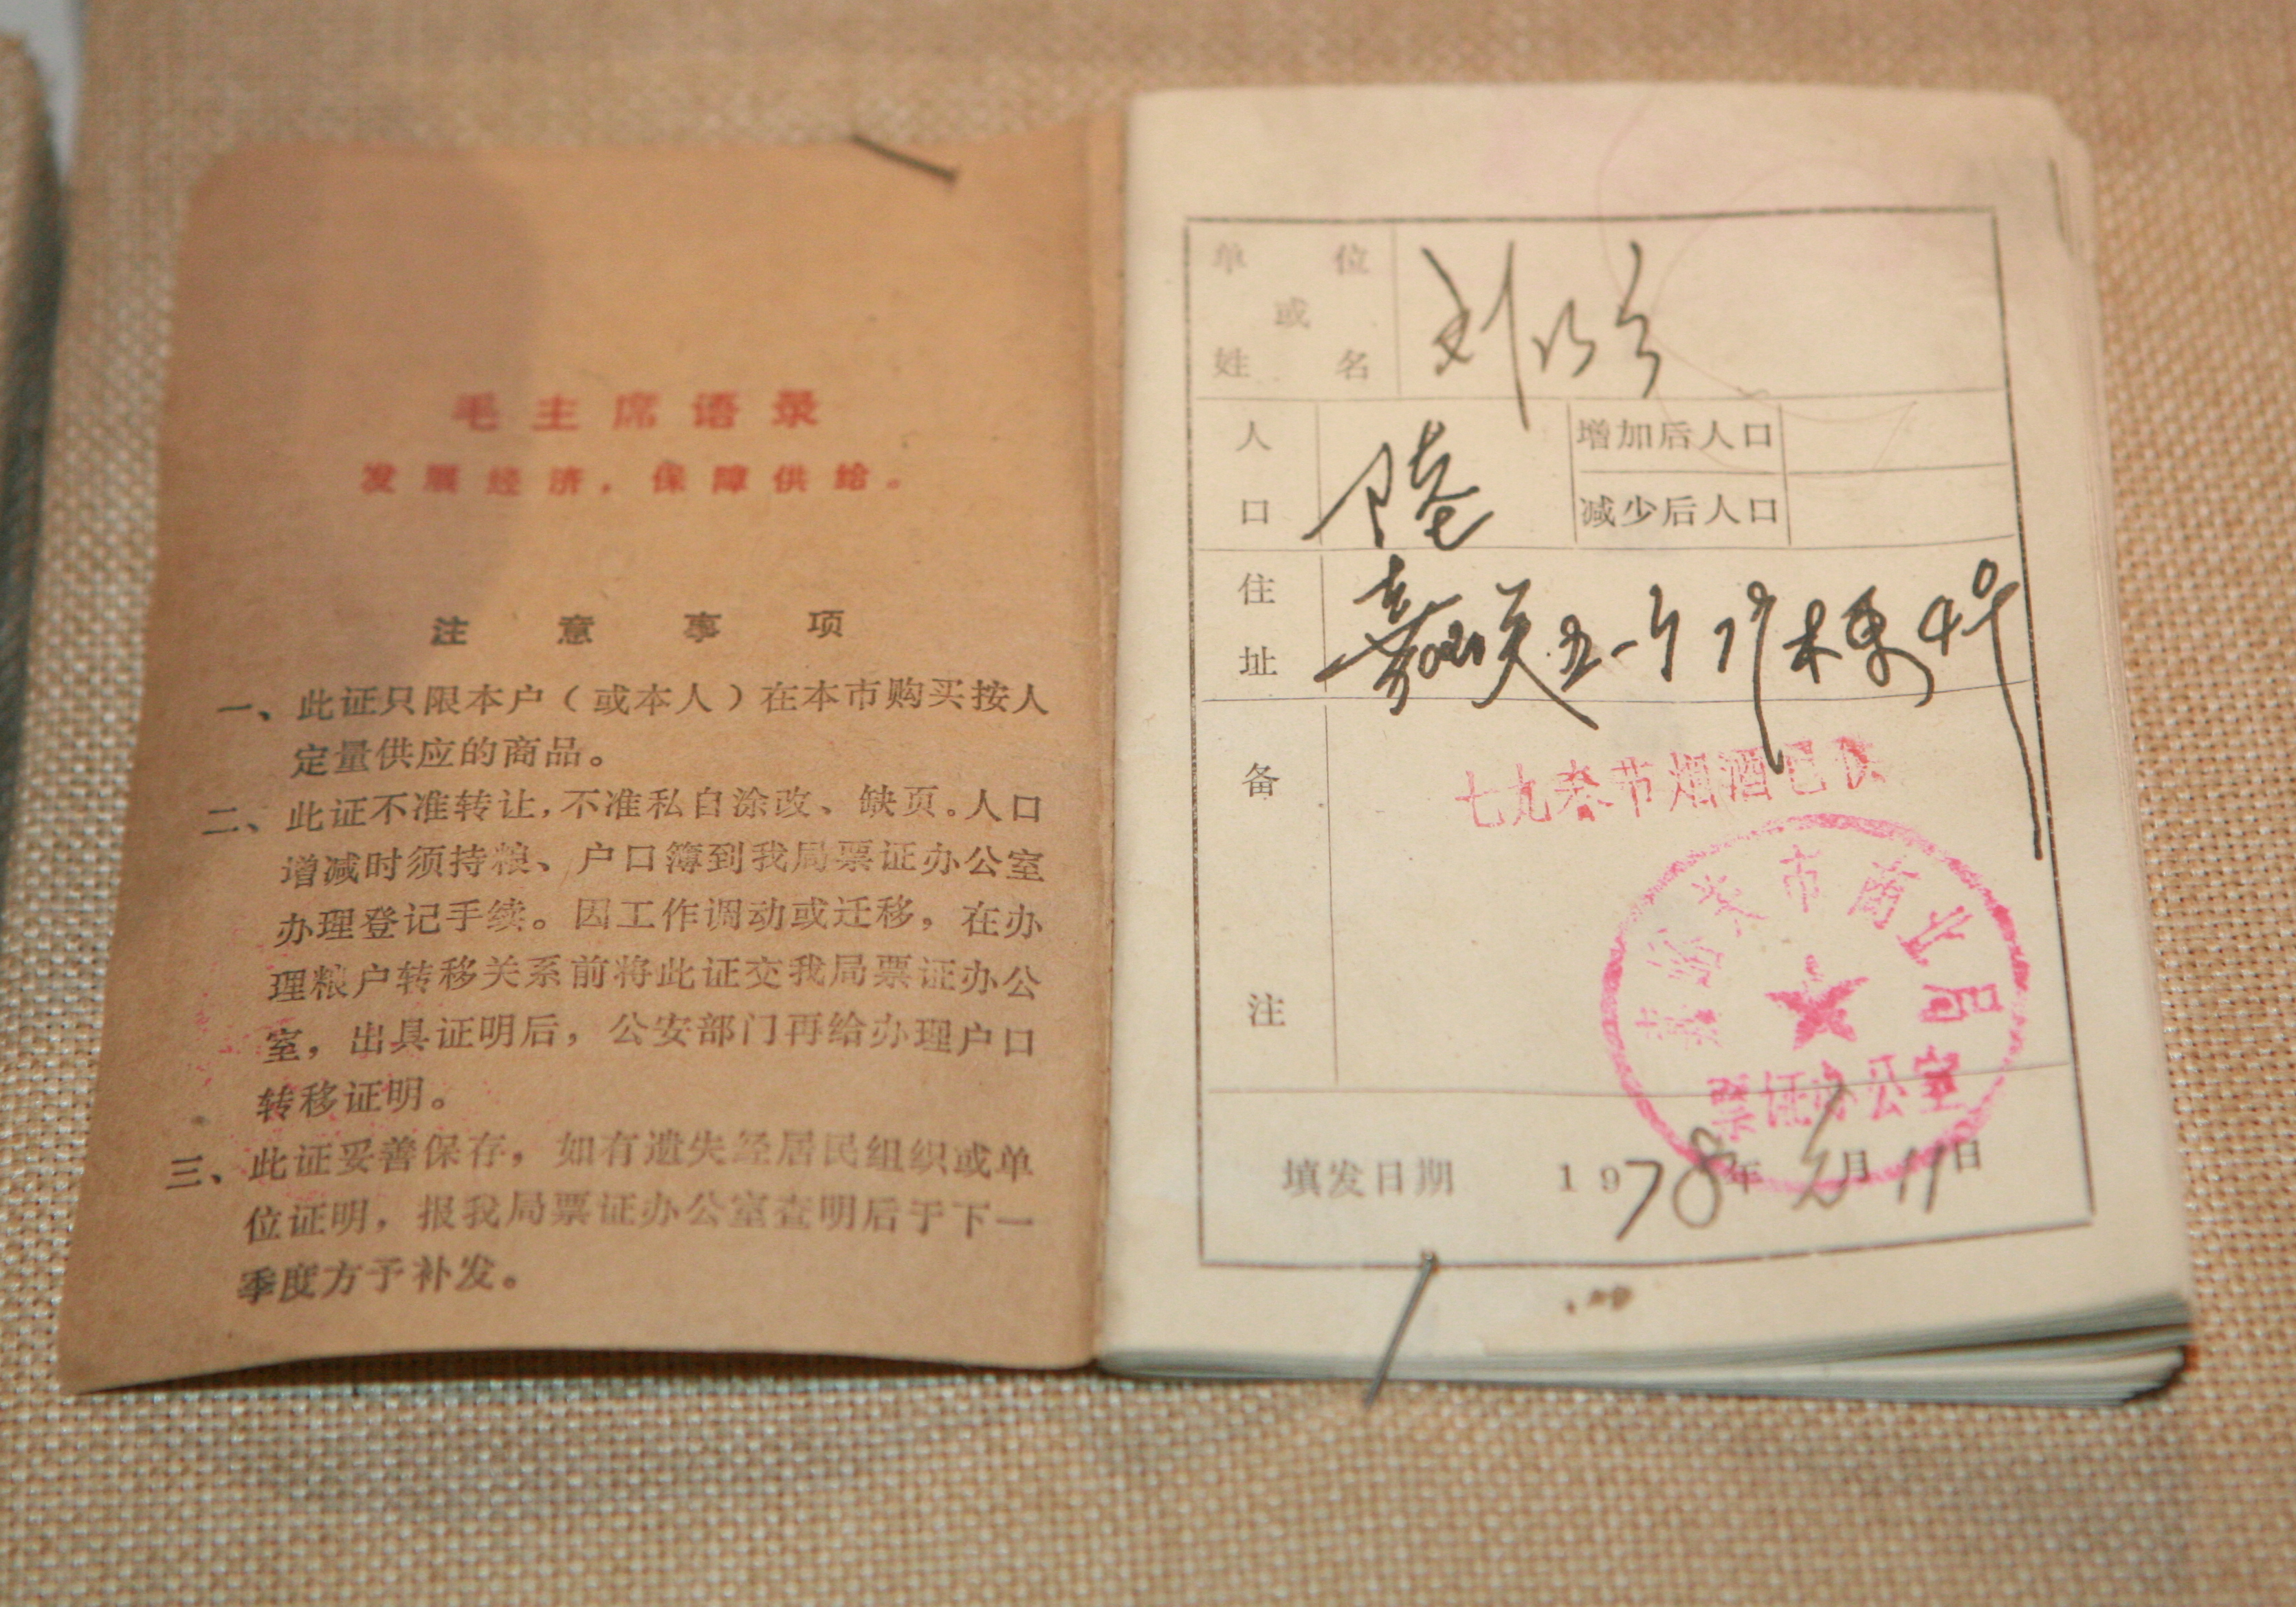 毛主席语录
发展经济，保障供给。
注意事项
一、此证只限本户（或本人）在本市购买按人
定量供应的商品。
二、此证不准转让，不准私自涂改、缺页。人口
增减时须持粮、户口簿到我局票证办公室
办理登记手续。因工作调动或迁移，在办
理粮户转移关系前将此证交我局票证办公
室，出具证明后，公安部门再给办理户口
转移证明。
三、此证妥善保存，如有遗失经居民组织或单
位证明，报我局票证办公室查明后于下一
季度方予补发。
单位
或
姓名
刘
人口
陆
增加后人口
减少后人口
住址
嘉峪关五一 栋4号
备注
七九春节烟酒已供
市商业局
票证办公室
填发日期 1978年 月11日